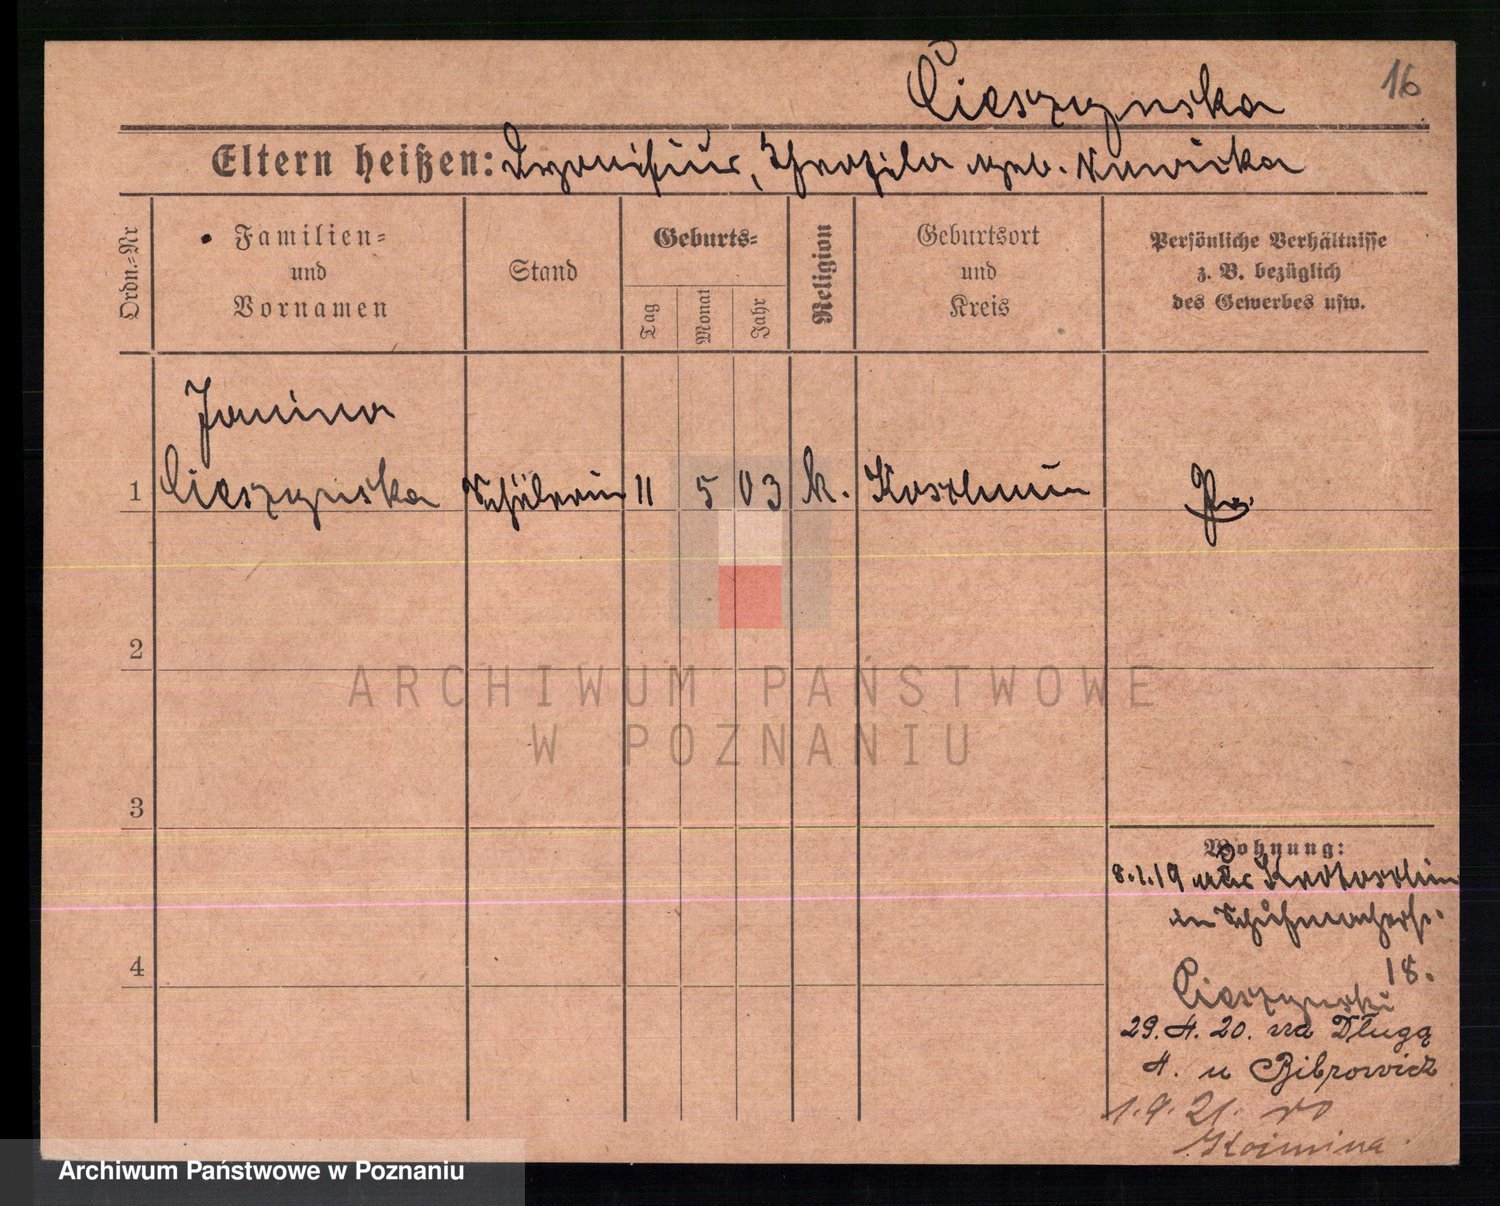 16
Cieszynska
Eltern heißen: Dyonisius, Theofila geb. Nawicka
Ordn.=Nr
Familien=
und
Vornamen
Stand
Geburts=
Tag
Monat
Jahr
Religion
Geburtsort
und
Kreis
Persönliche Verhältnisse
z. B. bezüglich
des Gewerbes usw.
Janina
1 Cieszynska Schülerin 11 5 03 k. Koschmin Pr.
2
3
4
Wohnung:
8.1.19 aus Krotoschin
in Schuhmacherst.
18.
Cieszynski
29.4.20. na Długą
4. u Bibrowicz
1.9.21. do
Koźmina.
ARCHIWUM PAŃSTWOWE
W POZNANIU
Archiwum Państwowe w Poznaniu